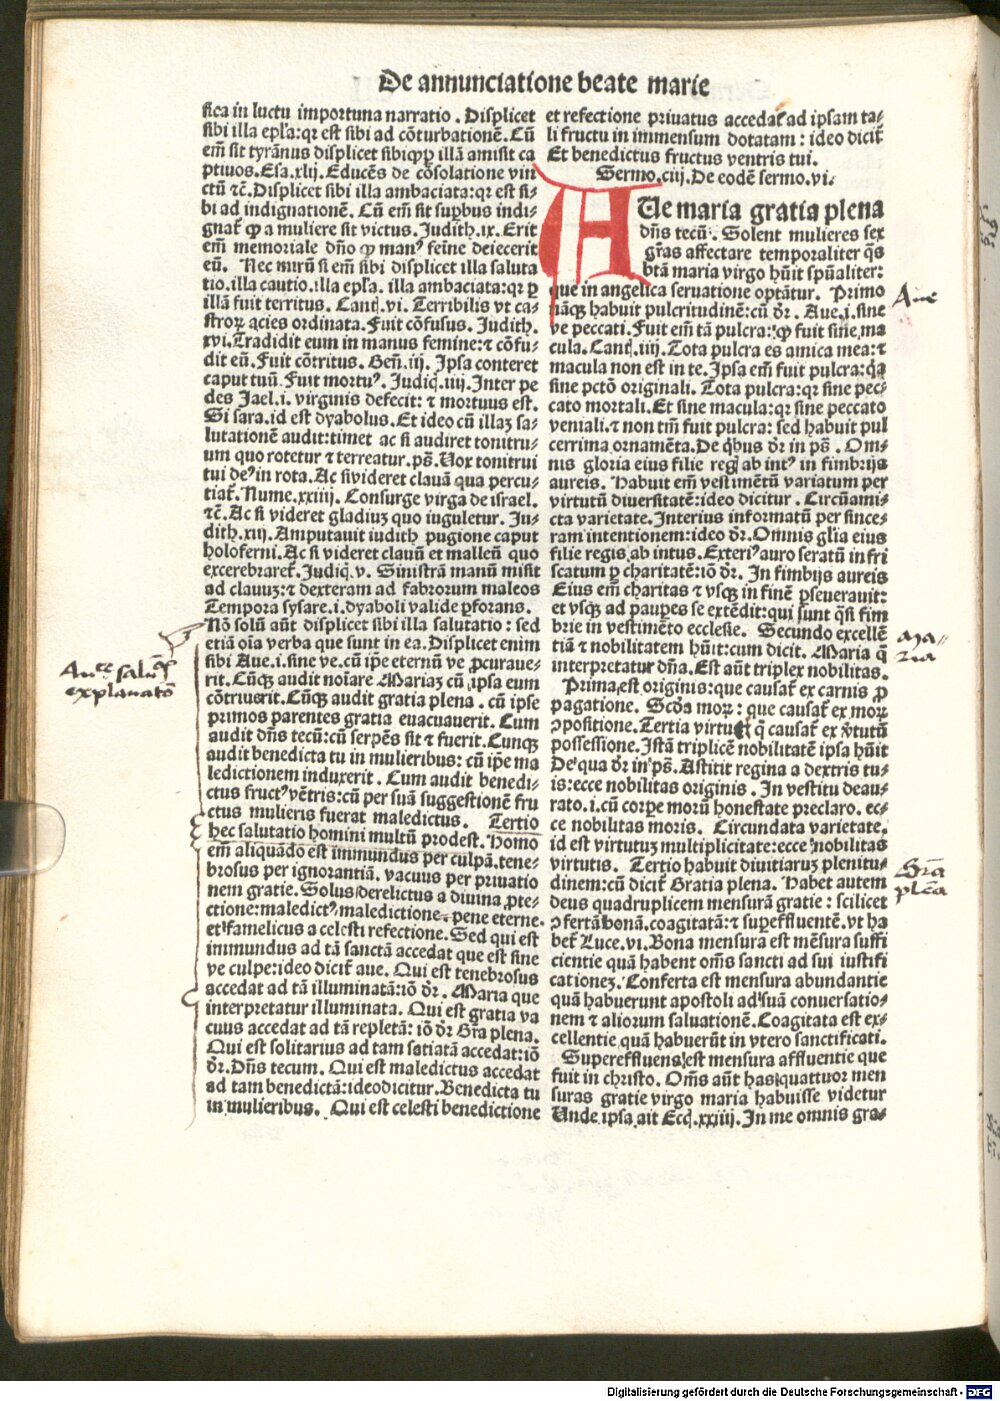 De annunciatione beate marie
fica in luctu importuna narratio. Displicet
sibi illa epl'a: qr est sibi ad cōturbationē. Cū
em̄ sit tyrānus displicet sibi qꝓ illā amisit ca
ptiuos. Esa. xlij. Educēs de cōsolatione vin
ctū ⁊c̄. Displicet sibi illa ambaciata: qr est si⸗
bi ad indignationē. Cū em̄ sit suꝑbus indi⸗
gnat̄ ꝙ a muliere sit victus. Judith. ix. Erit
em̄ memoriale dn̄o ꝙ manꝰ feīne deiecerit
eū. Nec mirū si em̄ sibi displicet illa saluta
tio. illa cautio. illa epl'a. illa ambaciata: qr ꝑ
illā fuit territus. Cant̄. vi. Terribilis vt ca⸗
stroꝝ acies ordinata. Fuit cōfusus. Judith.
xvi. Tradidit eum in manus femine: ⁊ cōfu⸗
dit eū. Fuit cōtritus. Gen̄. iij. Ipsa conteret
caput tuū. Fuit mortuꝰ. Judiq̄. iiij. Inter pe
des Jael. i. virginis defecit: ⁊ mortuus est.
Si sara. id est dyabolus. Et ideo cū illaꝫ sa⸗
lutationē audit: timet ac si audiret tonitru⸗
um quo rotetur ⁊ terreatur. ps̄. Uox tonitrui
tui deꝰ in rota. Ac si videret clauā qua percu⸗
tiat̄. Nume. xxiiij. Consurge virga de israel.
⁊c̄. Ac si videret gladiuꝫ quo iuguletur. Ju⸗
dith. xiij. Amputauit iudith pugione caput
holoferni. Ac si videret clauū et malleū quo
excerebraret̄. Judiq̄. v. Sinistrā manū misit
ad clauuꝫ: ⁊ dexteram ad fabrorum maleos
Tempora sysare. i. dyaboli valide ꝑforans.
Nō solū aūt displicet sibi illa salutatio: sed
etiā oīa verba que sunt in ea. Displicet enim
sibi Aue. i. sine ve. cū ip̄e eternū ve ꝓcuraue⸗
rit. Cūqꝫ audit noīare Mariaꝫ cū ipsa eum
cōtriuerit. Cūqꝫ audit gratia plena. cū ipse
primos parentes gratia euacuauerit. Cum
audit dn̄s tecū: cū serpēs sit ⁊ fuerit. Cunqꝫ
audit benedicta tu in mulieribus: cū ip̄e ma
ledictionem induxerit. Cum audit benedi⸗
ctus fructꝰ vētris: cū per suā suggestionē fru
ctus mulieris fuerat maledictus. Tertio
hec salutatio homini multū prodest. Homo
em̄ aliquādo est immundus per culpā. tene⸗
brosus per ignorantiā. vacuus per priuatio
nem gratie. Solus derelictus a diuina ꝓte⸗
ctione: maledictꝰ maledictione pene eterne.
et famelicus a celesti refectione. Sed qui est
immundus ad tā sanctā accedat que est sine
ve culpe: ideo dicit̄ aue. Qui est tenebrosus
accedat ad tā illuminatā: iō dr̄. Maria que
interpretatur illuminata. Qui est gratia va
cuus accedat ad tā repletā: iō dr̄. Gr̄a plena.
Qui est solitarius ad tam satiatā accedat: iō
dr̄. Dn̄s tecum. Qui est maledictus accedat
ad tam benedictā: ideo dicitur. Benedicta tu
in mulieribus. Qui est celesti benedictione
et refectione priuatus accedat ad ipsam ta⸗
li fructu in immensum dotatam: ideo dicit̄
Et benedictus fructus ventris tui.
Sermo. ciij. De eodē sermo. vi.
AUe maria gratia plena
dn̄s tecū. Solent mulieres sex
gr̄as affectare temporaliter q̄s
btā maria virgo hūit spūaliter:
que in angelica seruatione optātur. Primo
nāqꝫ habuit pulcritudinē: cū dr̄. Aue. i. sine
ve peccati. Fuit em̄ tā pulcra: ꝙ fuit sine ma
cula. Cant̄. iiij. Tota pulcra es amica mea: ⁊
macula non est in te. Ipsa em̄ fuit pulcra: q̄a
sine pctō originali. Tota pulcra: qr sine pec⸗
cato mortali. Et sine macula: qr sine peccato
veniali. ⁊ non tm̄ fuit pulcra: sed habuit pul
cerrima ornamēta. De q̄bus dr̄ in ps̄. Om⸗
nis gloria eius filie reḡ ab intꝰ in fimbrijs
aureis. Habuit em̄ vestimētū variatum per
virtutū diuersitatē: ideo dicitur. Circūami⸗
cta varietate. Interius informatū per since⸗
ram intentionem: ideo dr̄. Omnis gl̄ia eius
filie regis ab intus. Exteriꝰ auro seratū in fri
scatum ꝑ charitatē: iō dr̄. In fimbijs aureis
Eius em̄ charitas ⁊ vsqꝫ in finē ꝑseuerauit:
et vsqꝫ ad pauꝑes se extēdit: qui sunt q̄si fim
brie in vestimēto ecclesie. Secundo excellē
tiā ⁊ nobilitatem hūit: cum dicit. Maria q̄
interpretatur dn̄a. Est aūt triplex nobilitas.
Prima est originis: que causat̄ ex carnis ꝓ
pagatione. Scd̄a moꝝ: que causat̄ ex moꝝ
ↄpositione. Tertia virtutū q̄ causat̄ ex v̄tutū
possessione. Istā triplicē nobilitatē ipsa hūit
De qua dr̄ in ps̄. Astitit regina a dextris tu⸗
is: ecce nobilitas originis. In vestitu deau⸗
rato. i. cū corꝑe morū honestate preclaro. ec⸗
ce nobilitas moris. Circundata varietate,
id est virtutuꝫ multiplicitate: ecce nobilitas
virtutis. Tertio habuit diuitiaruꝫ plenitu⸗
dinem: cū dicit̄ Gratia plena. Habet autem
deus quadruplicem mensurā gratie: scilicet
ↄfertā bonā. coagitatā: ⁊ suꝑeffluentē. vt ha
bet̄ Luce. vi. Bona mensura est mēsura suffi
cientie quā habent om̄s sancti ad sui iustifi
cationeꝫ. Conferta est mensura abundantie
quā habuerunt apostoli ad suā conuersatio⸗
nem ⁊ aliorum saluationē. Coagitata est ex⸗
cellentie quā habuerūt in vtero sanctificati.
Supereffluens est mensura affluentie que
fuit in christo. Om̄s aūt has quattuor men
suras gratie virgo maria habuisse videtur
Unde ipsa ait Ecc̄. xxiiij. In me omnis gra⸗
Aue
ma⸗
ria
Gr̄a
plēa
explanatō
Digitalisierung gefördert durch die Deutsche Forschungsgemeinschaft - DFG